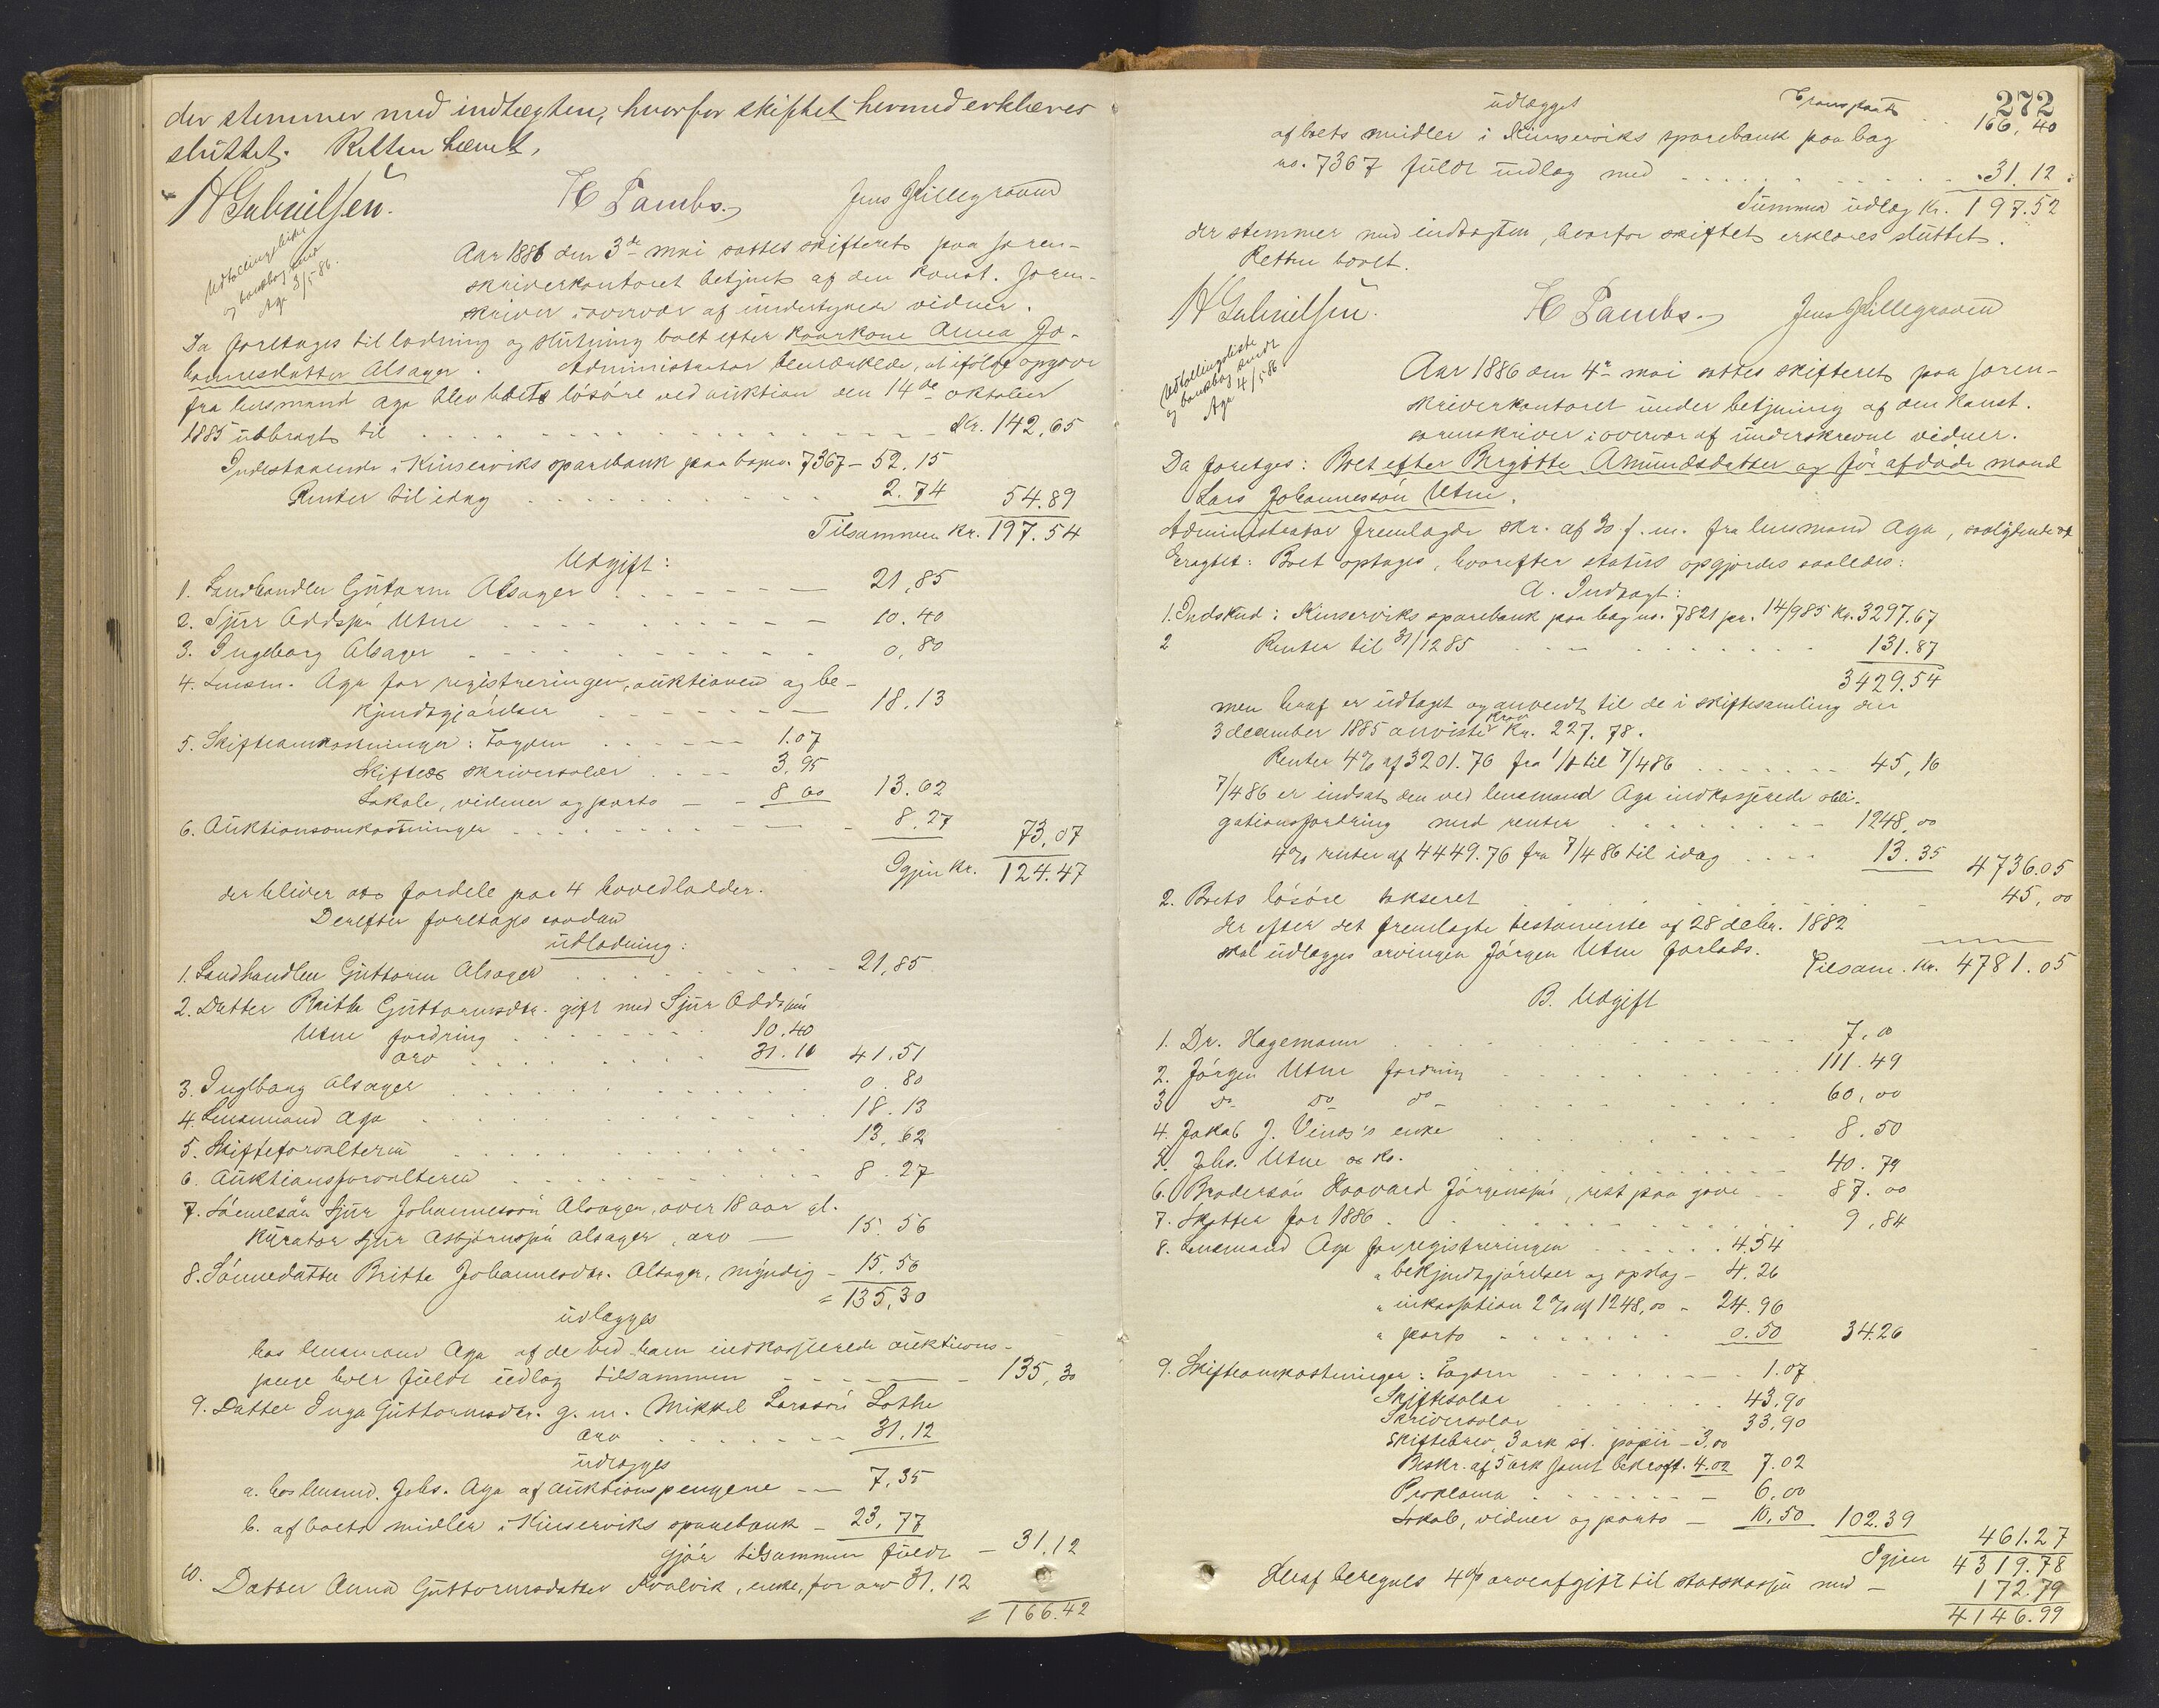 der stemmer med indtægten, hvorfor skiftet hermed erklæres
sluttet. Retten hævet.
H Gabrielsen. H Lambs. Jens Hillegraven
Udtællingsliste
og bankbog sendt
Aga 3/5 86.
Aar 1886 den 3de mai sattes skifteret paa soren-
skriverkontoret betjent af den konst. soren-
skriver i overvær af undertegnede vidner.
Da foretages til lodning og slutning boet efter kaarkone Anna Jo-
hannesdatter Alsager. Administrator bemærkede, at ifølge opgave
fra lensmand Aga blev boets løsøre ved auktion den 14de oktober
1885 udbragt til Kr. 142,65
Indestaaende i Kinserviks sparebank paa bogno. 7367 – 52.15
Renter til idag 2.74 54.89
Tilsammen Kr. 197.54
Udgift:
1. Landhandler Guttorm Alsager 21,85
2. Sjur Oddsøn Utne 10.40
3. Ingeborg Alsager 0,80
4. Lensm. Aga for registreringen, auktionen og be-
kjendtgjørelser 18.13
5. Skifteomkostninger: Fogden 1.07
Skifte og skriversalær 3,95
Lokale, vidner og porto 8 60 13.62
6. Auktionsomkostninger 8.27 73,07
Igjen Kr. 124.47
der bliver at fordele paa 4 hovedlodder.
Derefter foretages saadan
udlodning:
1. Landhandler Guttorm Alsager 21,85
2. Datter Britha Guttormsdtr. gift med Sjur Oddsøn
Utne fordring 10.40
arv 31.10 41.51
3. Ingeborg Alsager 0.80
4. Lensmand Aga 18.13
5. Skifteforvalteren 13,62
6. Auktionsforvalteren 8.27
7. Sønnesøn Sjur Johannessøn Alsager, over 18 aar gl.
Kurator Sjur Asbjørnsøn Alsager, arv 15.56
8. Sønnedatter Britta Johannesdtr. Alsager, myndig – 15.56
= 135,30
udlægges
hos lensmand Aga af de ved ham indkasserede auktions-
penge hver fuldt udlæg tilsammen 135,30
9. Datter Inga Guttormsdtr. g. m. Mikkel Larssøn Lothe
arv 31.12
udlægges
a. hos lensmd. Johs. Aga af auktionspengene 7.35
b. af boets midler i Kinserviks sparebank – 23,77
gjør tilsammen fuldt – 31.12
10. Datter Anna Guttormsdatter Kvalvik, enke, for arv 31.12
= 166.42
272
udlægges Transport 166,40
af boets midler i Kinserviks sparebank paa bog
no. 7367 fuldt udlæg med 31.12
Summa udlæg Kr. 197.52
der stemmer med indtægten, hvorfor skiftet erklæres sluttet.
Retten hævet.
H Gabrielsen. H Lambs. Jens Hillegraven
Udtællingsliste
og bankbog sendt
Aga 4/5 86
Aar 1886 den 4de mai sattes skifteret paa soren-
skriverkontoret under betjening af den konst.
sorenskriver i overvær af underskrevne vidner.
Da foretges: Boet efter Brygitte Amundsdatter og før afdøde mand
Lars Johannessøn Utne.
Administrator fremlagde skr. af 30 f. m. fra lensmand Aga, saalydende
Eragtet: Boet optages, hvorefter status opgjordes saaledes:
A. Indtægt:
1. Indskud i Kinserviks sparebank paa bog no. 7821 pr. 14/9 85 Kr. 3297.67
2 Renter til 31/12 85 131.87
3429.54
men heraf er udtaget og anvendt til de i skiftesamling den
3 december 1885 anviste krav Kr. 227.78.
Renter 4% af 3201.76 fra 1/1 til 7/4 86 45,16
7/4 86 er indsat den ved lensmand Aga indkasserede obli-
gationsfordring med renter 1248,00
4% renter af 4449.76 fra 7/4 86 til idag 13.35 4736.05
2. Boets løsøre takseret 45,00
der efter det fremlagte testamente af 28 debr. 1882
skal udlægges arvingen Jørgen Utne forlods.
Tilsam. Kr. 4781.05
B. Udgift
1. Dr. Hagemann 7.00
2. Jørgen Utne fordring 111.49
3 do do do 60,00
4. Jakob J. Vines's enke 8.50
5. Johs. Utne & Ko. 40.79
6. Brodersøn Haavard Jørgensøn, rest paa gave 87.00
7. Skatter for 1886 9,84
8. Lensmand Aga for registreringen 4.54
" bekjendtgjørelser og opslag – 4.26
" inkassation 2% af 1248,00 – 24.96
" porto 0.50 34.26
9. Skifteomkostninger: Fogden 1.07
Skiftesalær 43,90
Skriversalær 33,90
Skiftebrev, 3 ark st. papir – 3,00
Beskr. af 5 ark samt bekræft. 4.02 7.02
Proklama 6.00
Lokale, vidner og porto – 10,50 102.39 461.27
Igjen 4319.78
Heraf beregnes 4% arveafgift til statskassen med – 172.79
4146.99